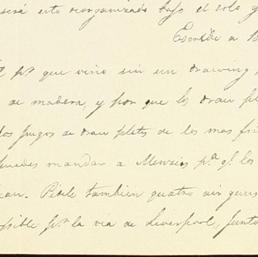 será esto reorganizado bajo el solo g
Escribe a B
pª que vino sin un drawing
de madera, y pon que los draw p
dos juegos de draw plates de los mas fi
puedes mandar a Menzies pª qᵉ los
can. Pídele también quatro air guns
posible pʳ la via de Liverpool, junto